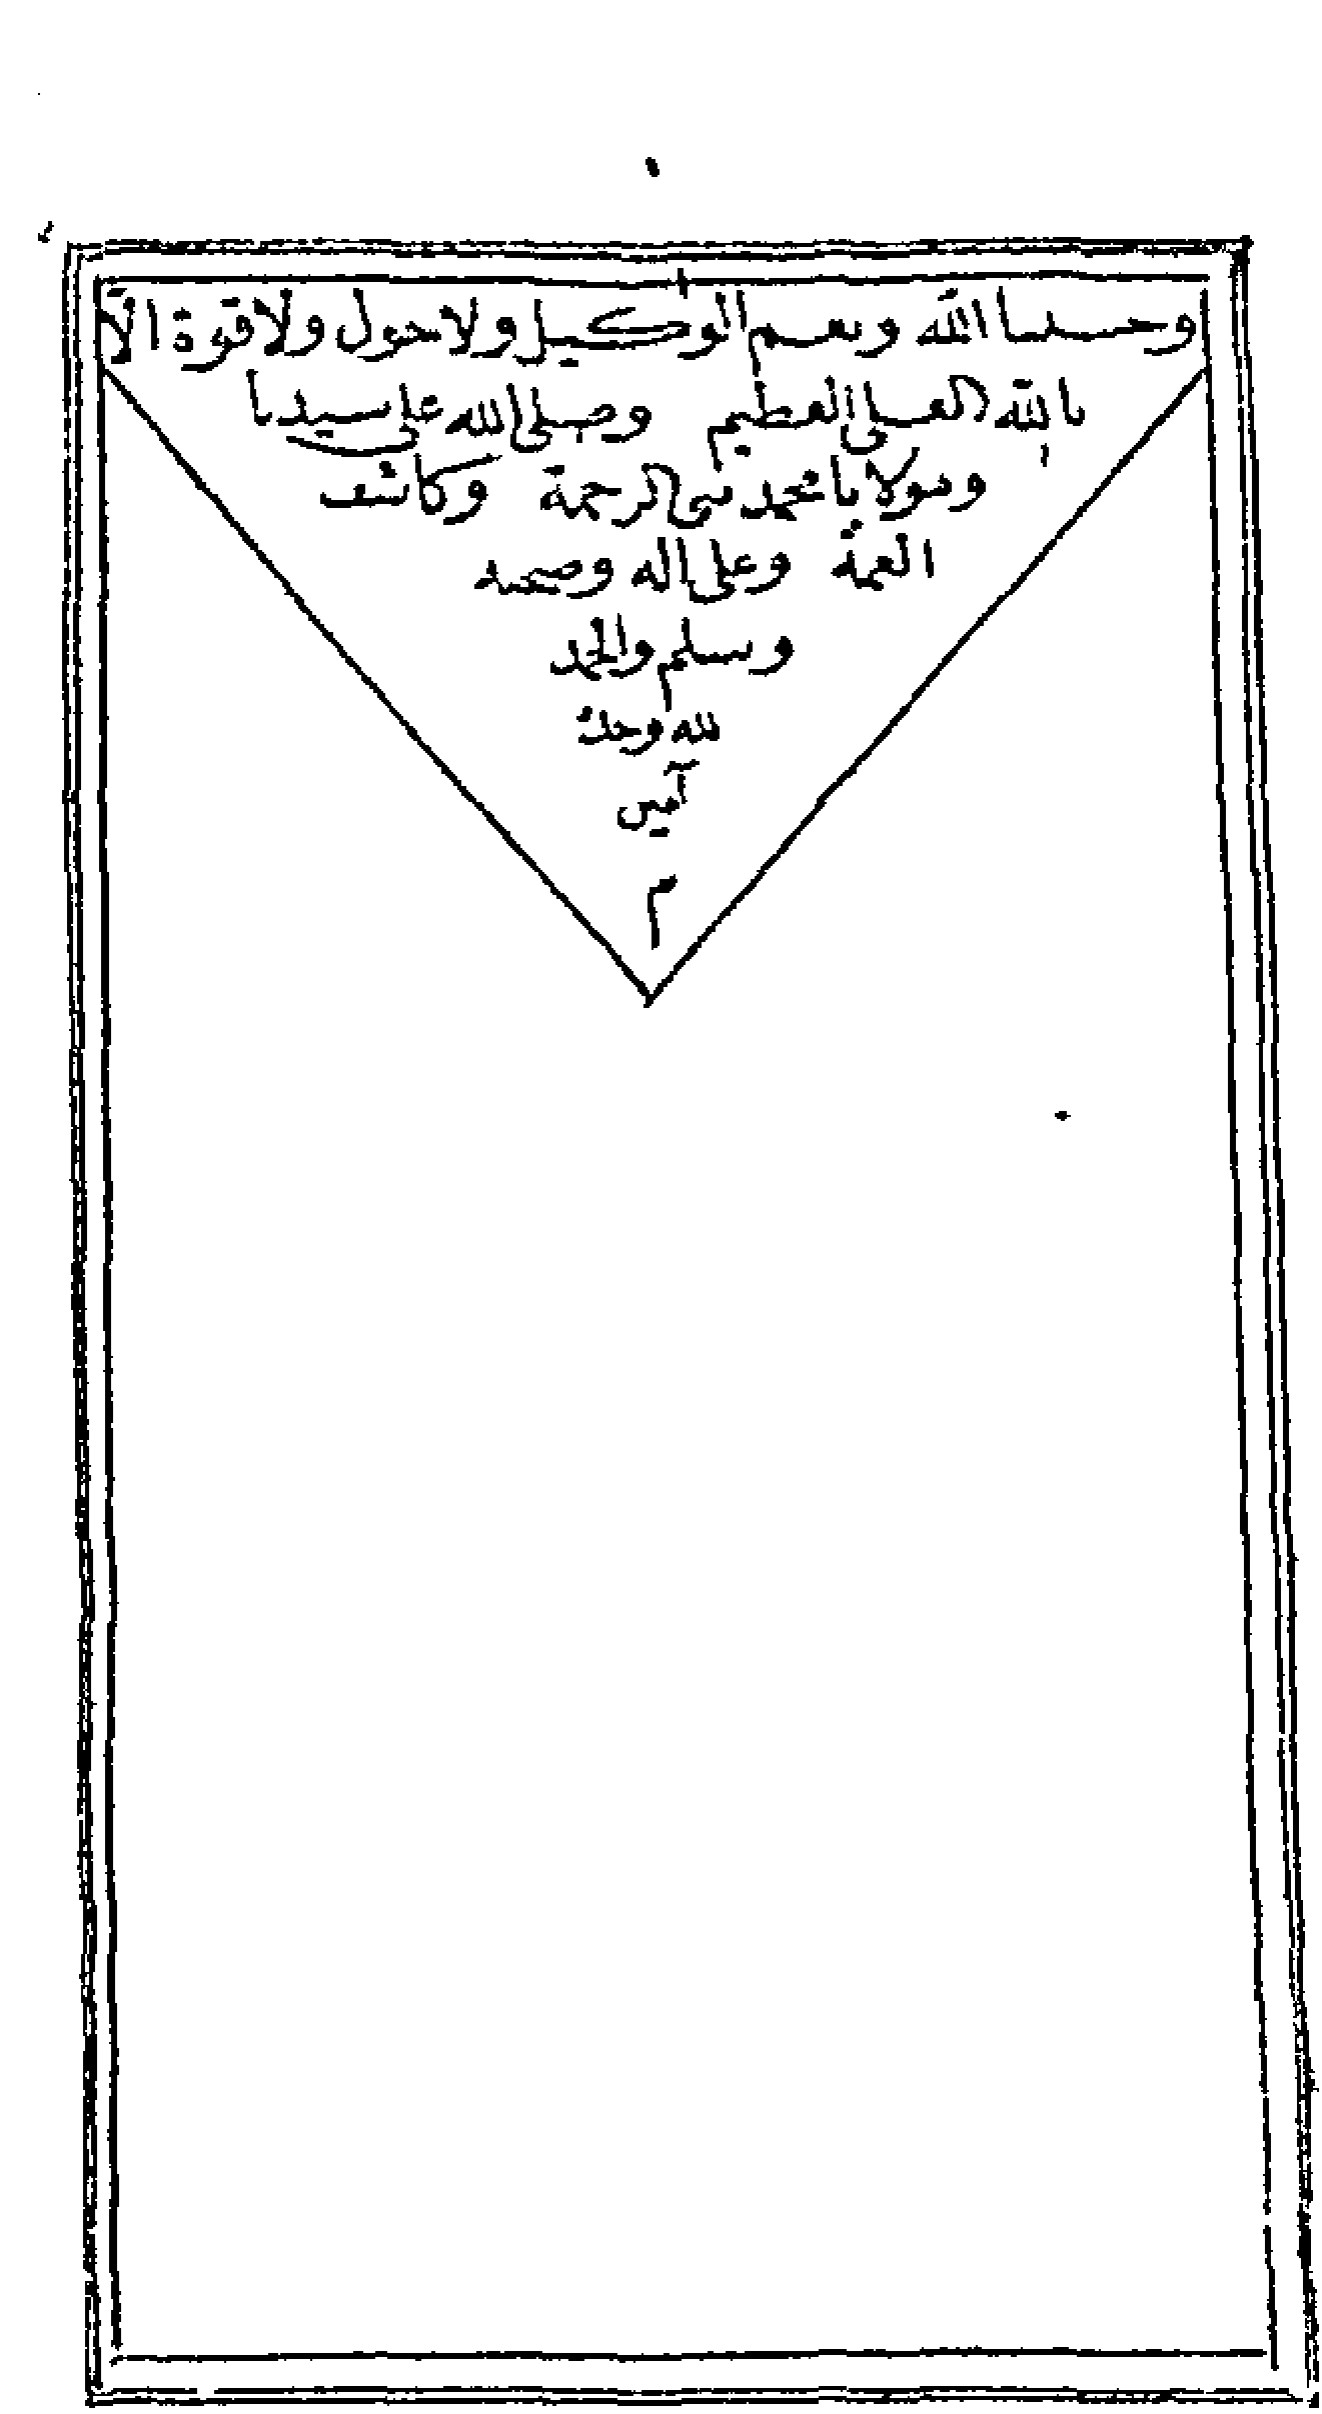 وحسبنا الله ونعم الوكيل ولا حول ولا قوة الّا
بالله العلى العظيم وصلى الله على سيدنا
ومولانا محمد نبى الرحمة وكاشف
الغمة وعلى اله وصحبه
وسلم والحمد
لله وحده
آمين
م